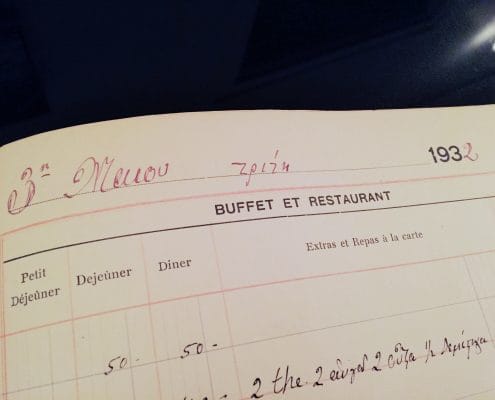 3η Μαιου τρίτη 1932
BUFFET ET RESTAURANT
Petit Déjeùner Dejeùner Dìner Extras et Repas à la carte
50- 50-
2 the 2 αὐγά 2 οὖζα ½